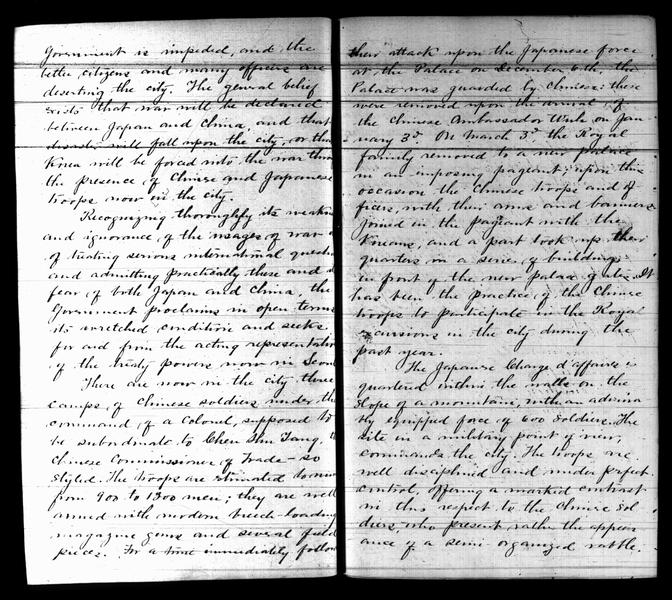 Government is impeded, and the
better citizens and many officers are
deserting the city. The general belief
exists that war will be declared
between Japan and China, and that
disaster will fall upon the city, or that
Korea will be forced into the war thro
the presence of Chinese and Japanese
troops now in the city.
Recognizing thoroughly its weakness
and ignorance of the usages of war
of treating serious international questi
and admitting practically these and
fear of both Japan and China, the
Government proclaims in open terms
its wretched condition and seeks
for aid from the acting representative
of the treaty powers now in Seoul
There are now in the city three
camps of Chinese soldiers under the
command of a Colonel, supposed to
be subordinate to Chen Shu Tang,
Chinese Commissioner of Trade — so
styled. The troops are estimated to num
from 900 to 1300 men; they are well
armed with modern breech-loading
magazine guns and several field
pieces. For a time immediately follow
their attack upon the Japanese force
at the Palace on December 6th, the
Palace was guarded by Chinese: these
were removed upon the arrival of
the Chinese Ambassador Woo on Jan
uary 3d. On March 3d the Royal
family removed to a new palace
in an imposing pageant; upon this
occasion the Chinese troops and of
ficers, with their arms and banners
joined in the pageant with the
Koreans, and a part took up their
quarters in a series of buildings
in front of the new Palace gates. It
has been the practice of the Chinese
troops to participate in the Royal
excursions in the city during the
past year.
The Japanese Chargé d'affaires is
quartered within the walls on the
slope of a mountain, with an admira
bly equipped force of 600 soldiers. The
site in a military point of view,
commands the city. The troops are
well disciplined and under perfect
control, offering a marked contrast
in this respect to the Chinese Sol
diers, who present rather the appear
ance of a semi organized rabble.